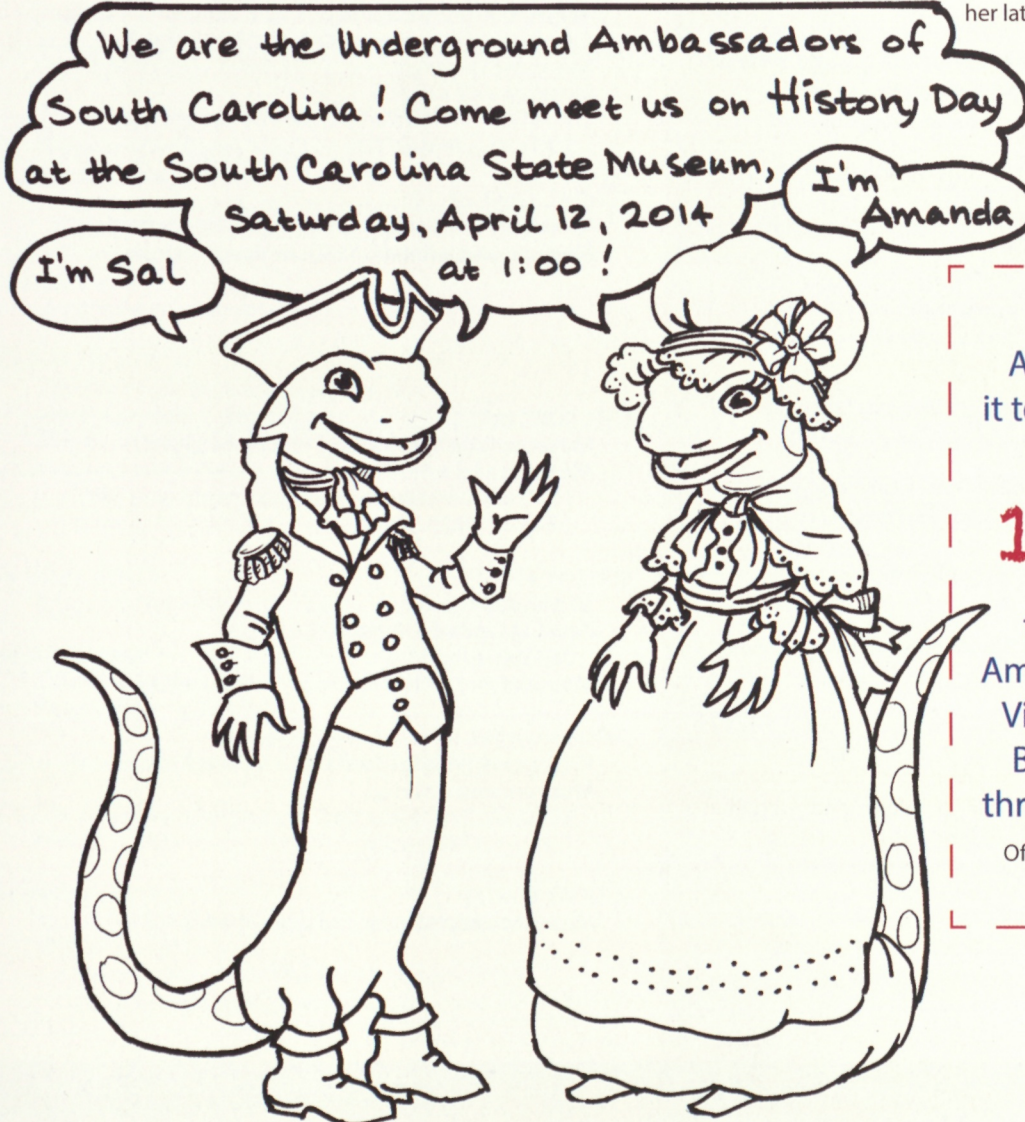 her lat
We are the Underground Ambassadors of
South Carolina! Come meet us on History Day
at the South Carolina State Museum,
Saturday, April 12, 2014
at 1:00!
I'm
Amanda
I'm Sal
A
it t
1
Am
Vi
B
thr
Of